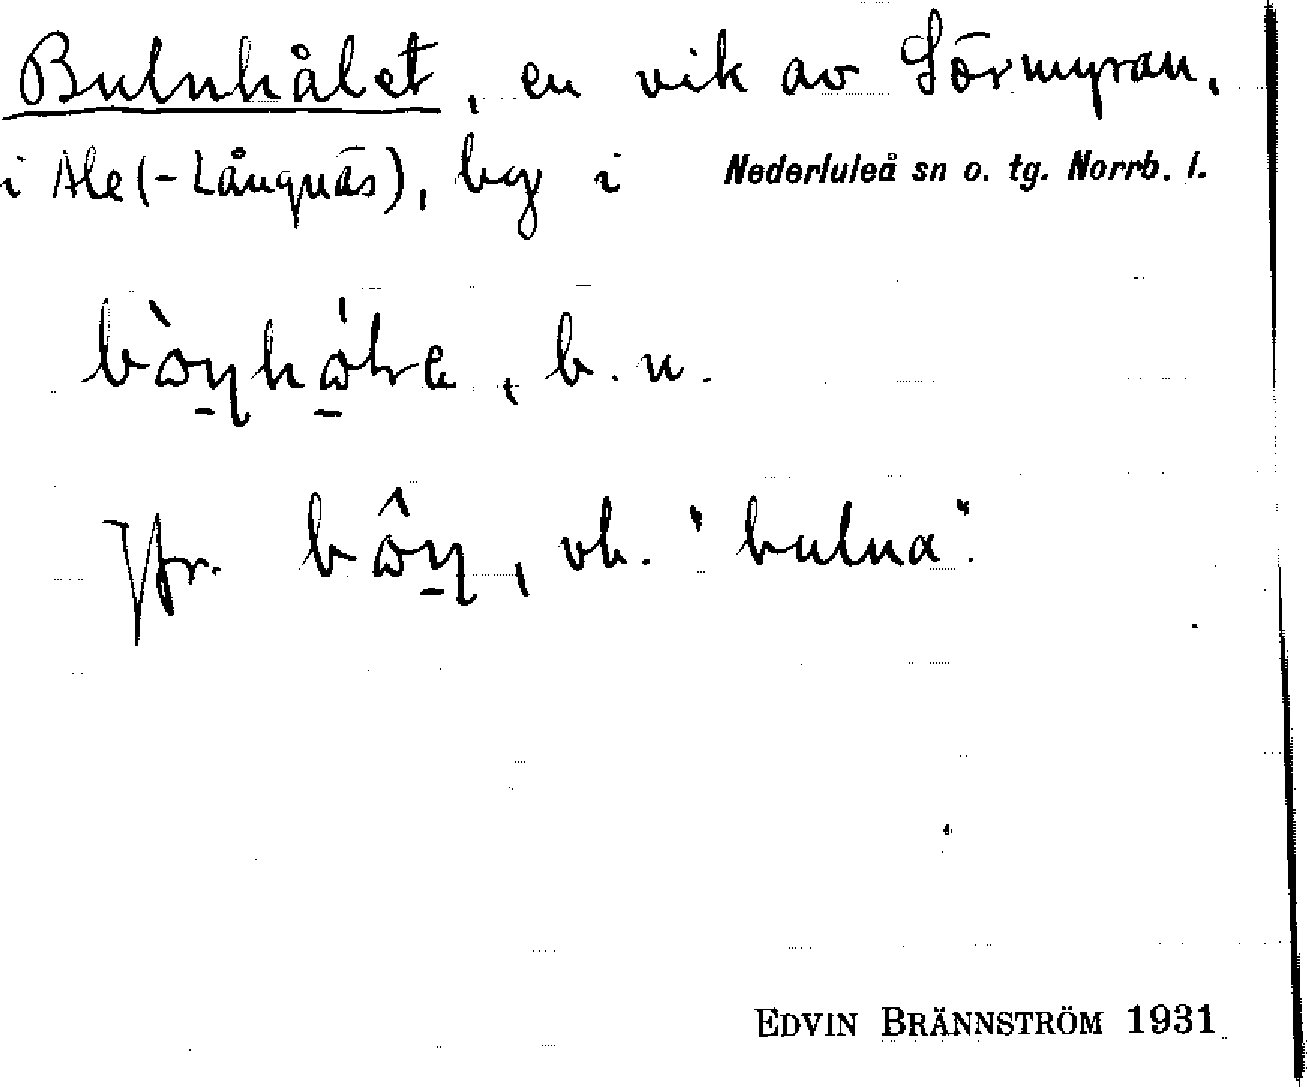 Bulnhålet, en vik av Sörmyran,
i Ale (-Långnäs), by i Nederluleå sn o. tg. Norrb. l.
b. n.
Jfr. vb. "bulna".
EDVIN BRÄNNSTRÖM 1931